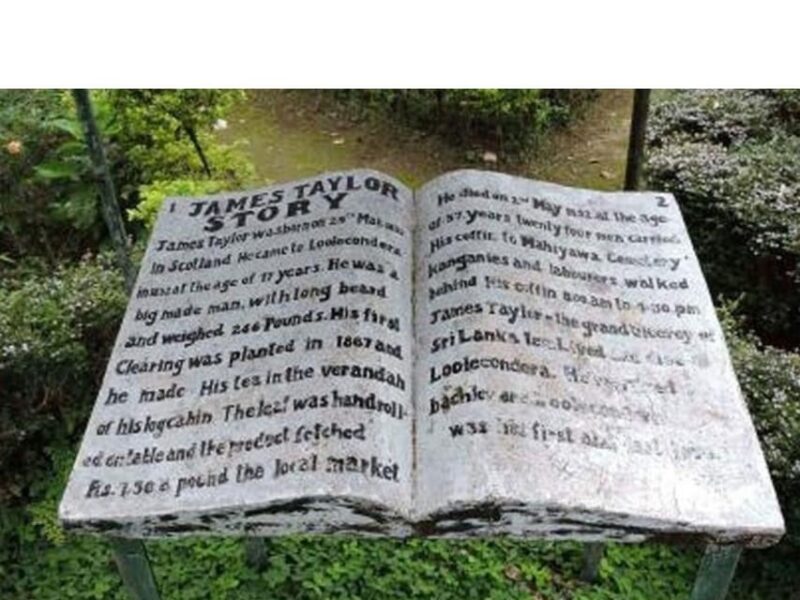 1 JAMES TAYLOR
STORY
James Taylor was born on 29th Mar
in Scotland. He came to Loolecondera
in at the age of 17 years. He was a
big made man, with long beard
and weighed 246 Pounds. His first
Clearing was planted in 1867 and
he made His tea in the verandah
of his logcabin. The leaf was handroll-
ed on table and the product fetched
Rs. 1.50 a pound the local market
2
He died on 2nd May 1892 at the age
of 57 years twenty four men carried
His coffin to Mahiyawa Cemetery
kanganies and labourers walked
behind His coffin 8.00 am to 4.30 pm
James Taylor - the grand viceroy of
Sri Lanks tea. Lived and
Loolecondera. He
bachler and Loolecondera
was his first and last